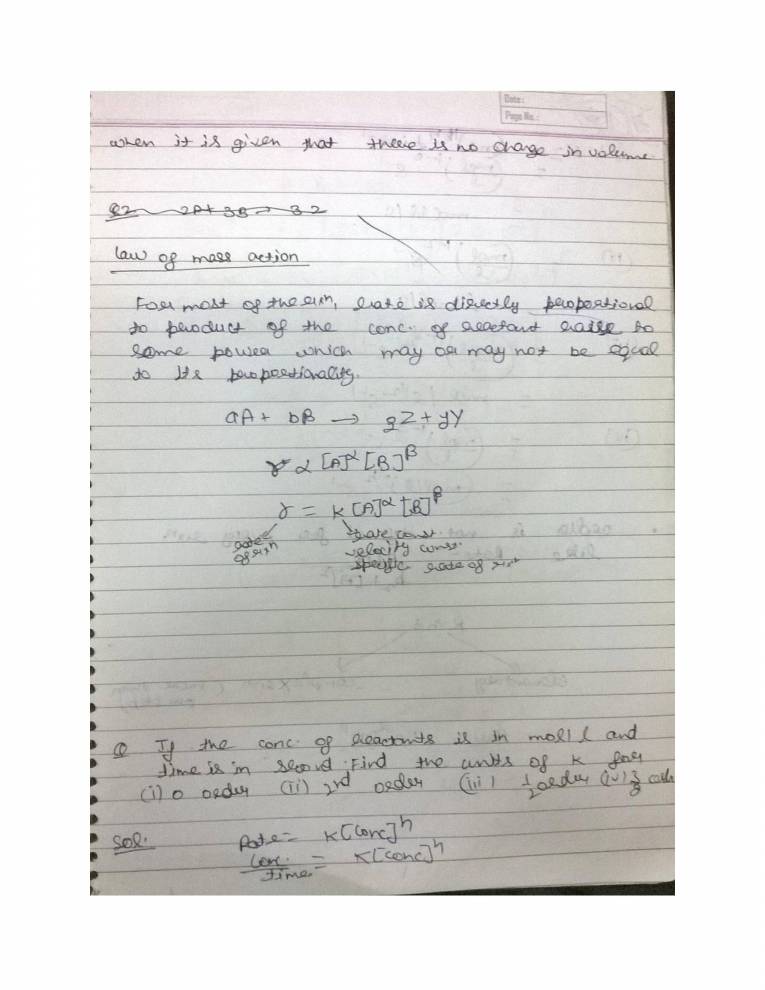 Date:
Page No.:
when it is given that there is no change in volume
Q2 2A + 3B → 3Z
Law of mass action
For most of the rxn, rate is directly proportional
to product of the conc. of reactant raise to
some power which may or may not be equal
to its proportionality.
aA + bB → zZ + yY
r α [A]^α [B]^β
r = K[A]^α [B]^β
rate of rxn
rate const.
velocity const.
specific rate of rxn
Q If the conc. of reactants is in mol/l and
time is in second. Find the units of K for
(i) 0 order (ii) 2nd order (iii) 1/2 order (iv)
Sol. Rate = K[conc]^n
conc./time = K[conc]^n